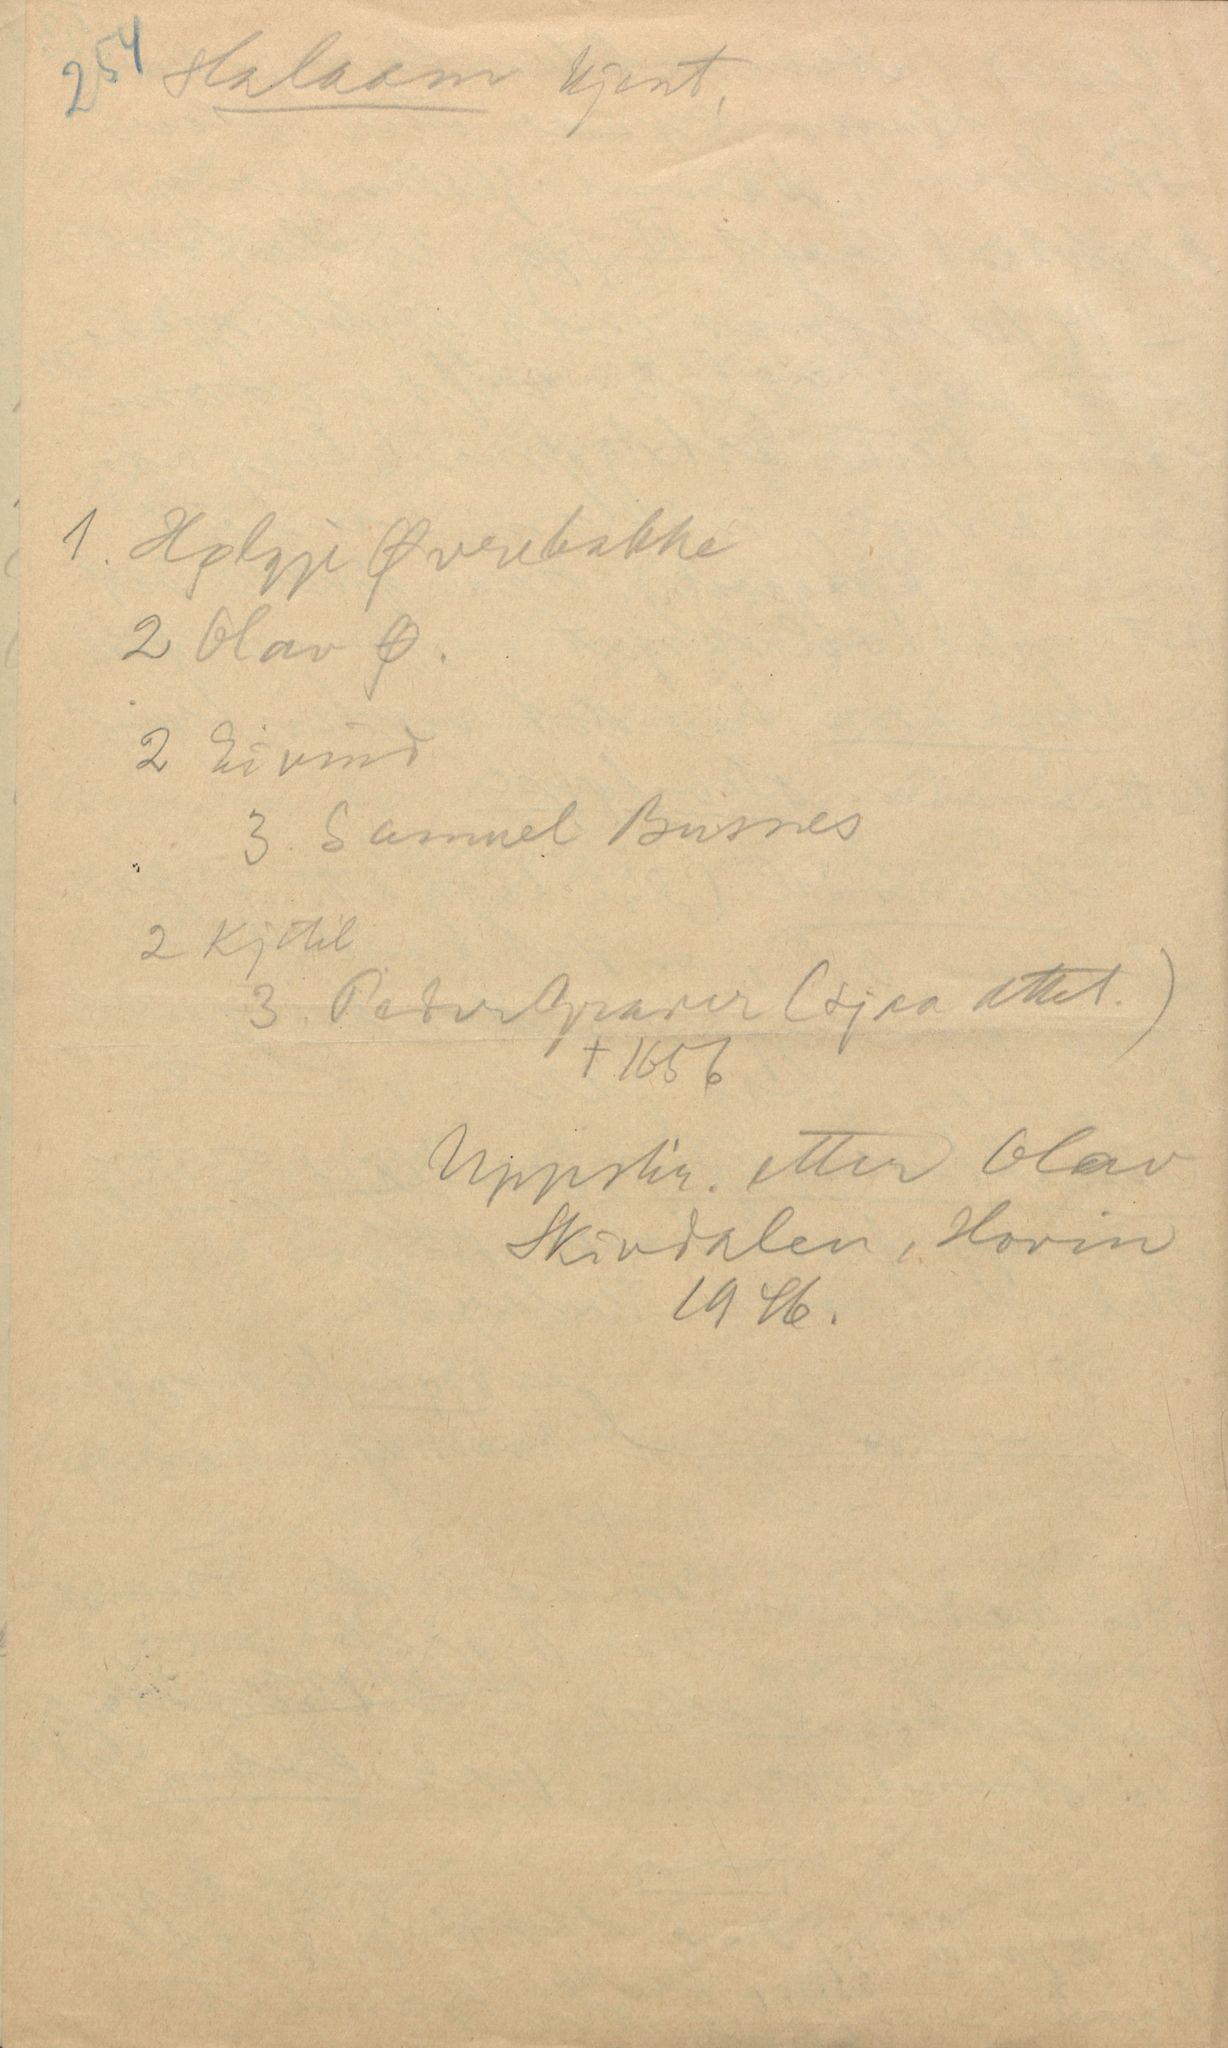 254 Halaām Ujent,
1. Hølgje Øverebakke
2 Olav Ø.
2 Eivind
3 Samuel Busnes
2 Kjetil
3. Peder Graver (sjaa attet.)
† 1656
Uppskr. etter Olav
Skirdalen, Hovin
1946.